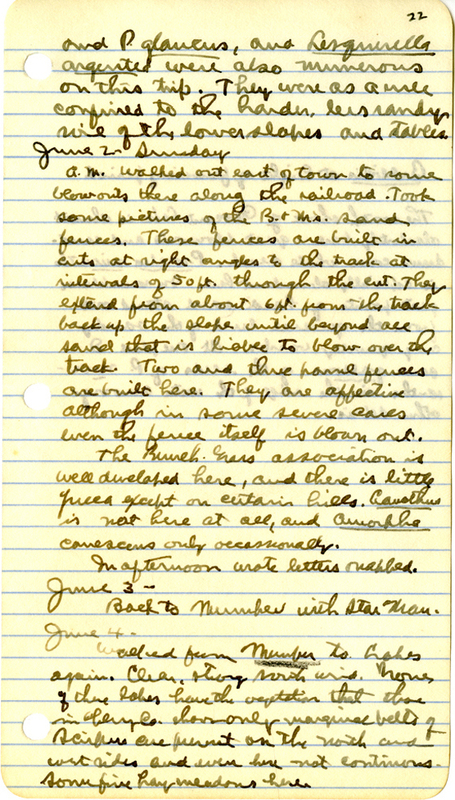 22
and P. glaucus, and Lesquerella
argentea were also numerous
on this trip. They were as a rule
confined to the harder, less sandy
sire of the lower slopes and tables.
June 2 - Sunday
A.M. walked out east of town to some
blowouts there along the railroad. Took
some pictures of the B. + Ms. sand
fences. These fences are built in
cuts at right angles to the track at
intervals of 50 ft. through the cut. They
extend from about 6 ft. from the track
back up the slope until beyond all
sand that is liable to blow over the
track. Two and three panel fences
are built here. They are affective
although in some severe cases
even the fence itself is blown out.
The Bunch-Grass association is
well developed here, and there is little
else except on certain hills. Ceanothus
is not here at all, and Amorpha
canescens only occassionally.
In afternoon wrote letters & napped.
June 3 -
Back to Mumper with Star Man.
June 4 -
Walked from Mumper to Lakes
again. Clear, strong north wind. None
of these lakes have the vegetation that those
in Cherry Co. show only marginal belts of
Scirpus are present on the north and
west sides and even here not continuous.
Some fine hay meadows here.